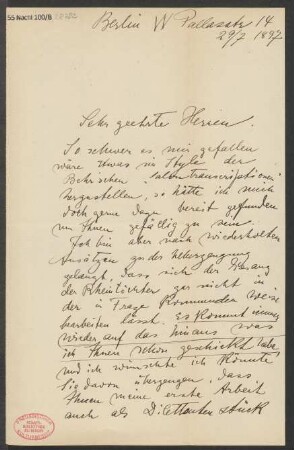 55 Nachl 100/B
Berlin W Pallasstr 14
29/7 1897
Sehr geehrte Herren.
So schwer es mir gefallen
wäre Etwas im Style der
"Salon Transcriptionen"
herzustellen, so hätte ich mich
doch gerne dazu bereit gefunden
um Ihnen gefällig zu sein.
Ich bin aber nach wiederholten
Ansätzen zu der Ueberzeugung
gelangt, dass sich der Gesang
der Rheintöchter gar nicht in
der in Frage kommenden Weise
bearbeiten lässt. Es kommt immer
wieder auf das hinaus was
ich Ihnen schon geschickt habe
und ich wünschte ich könnte
Sie davon überzeugen, dass
Ihnen meine erste Arbeit
auch als Dilettantenstück